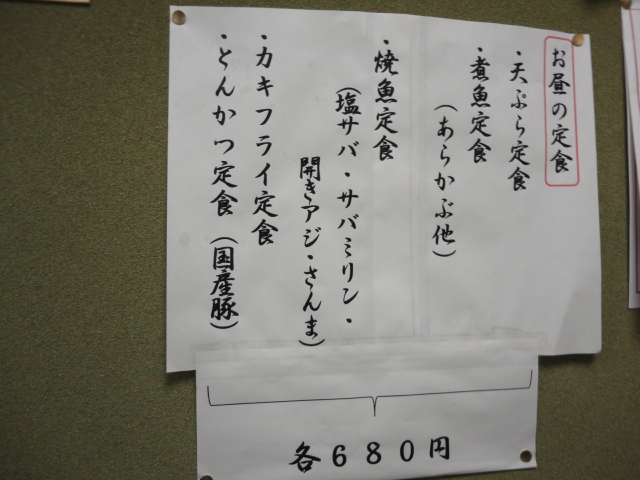 お昼の定食
・天ぷら定食
・煮魚定食
（あらかぶ他）
・焼魚定食
（塩サバ・サバミリン・
開きアジ・さんま）
・カキフライ定食
・とんかつ定食（国産豚）
各６８０円